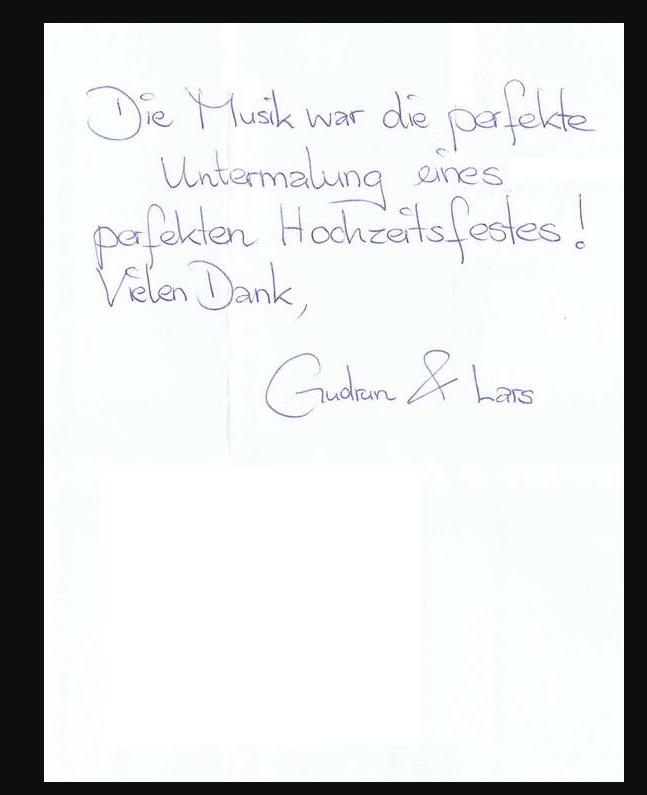 Die Musik war die perfekte
Untermalung eines
perfekten Hochzeitsfestes!
Vielen Dank,
Gudrun & Lars